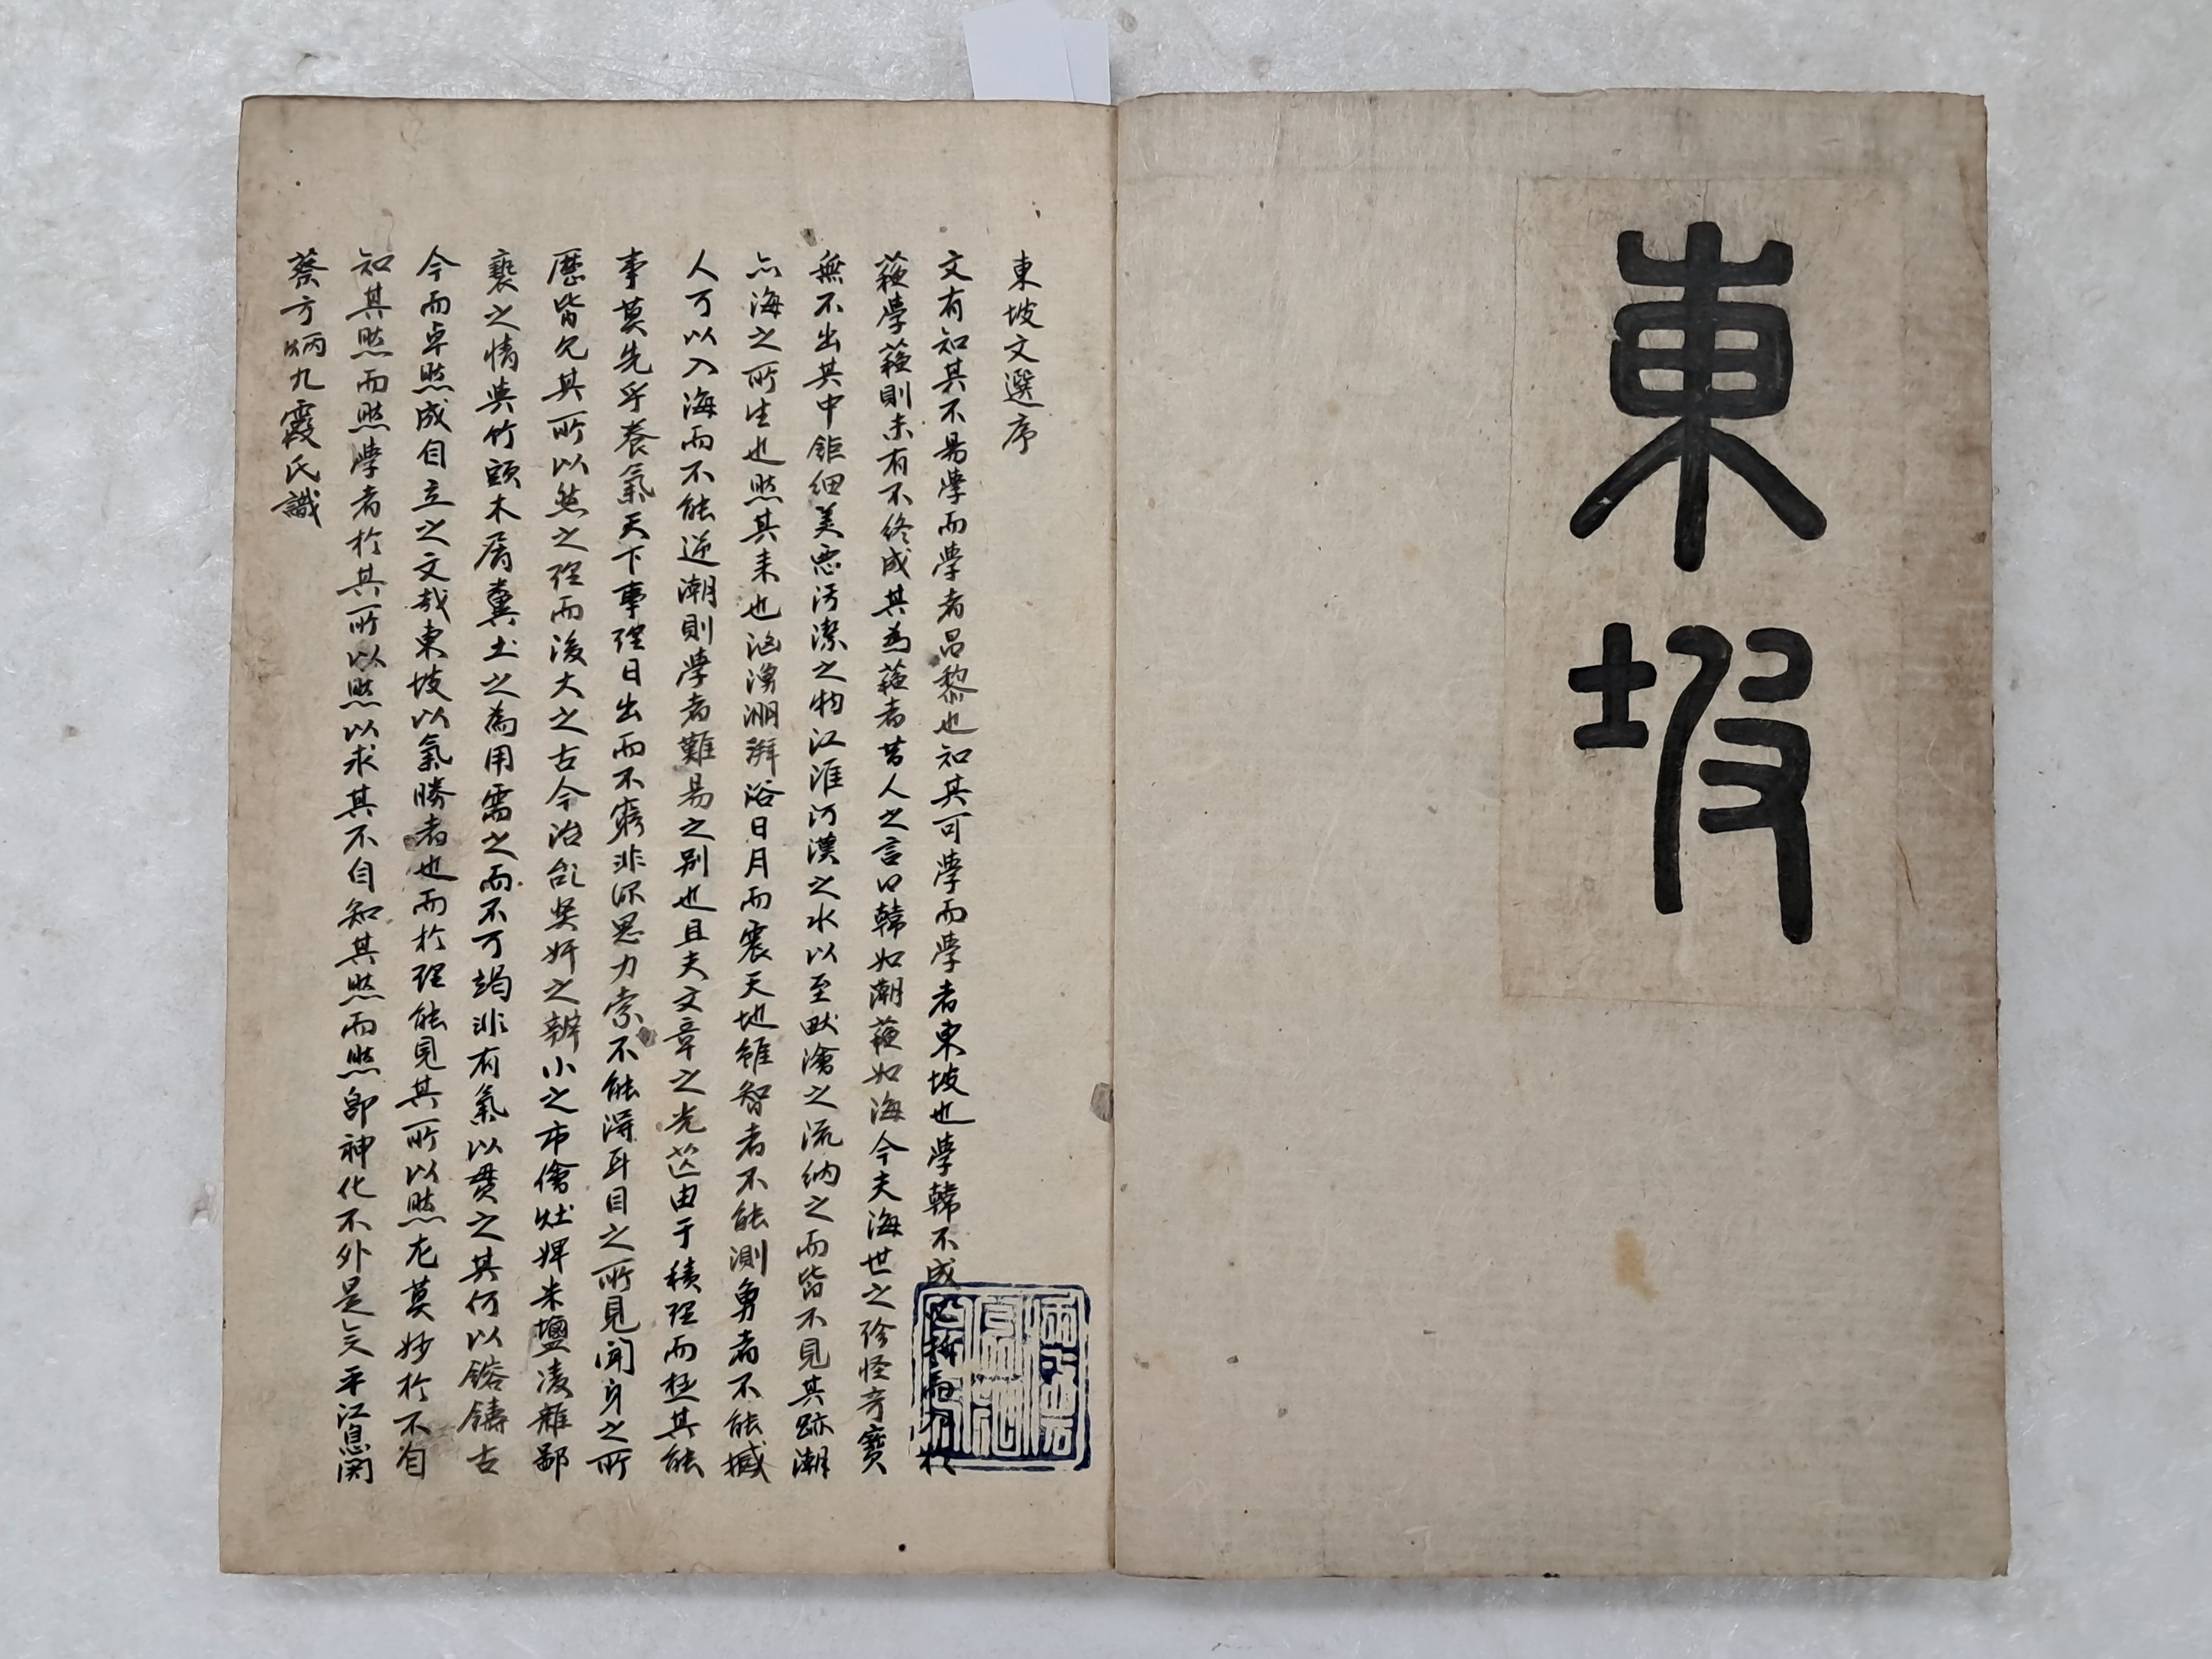 東坡
東坡文選序
文有知其不易學而學者昌黎也知其可學而學者東坡也學韓不成
蘓學蘓則未有不終成其為蘓者昔人之言曰韓如潮蘓如海今夫海世之珍怪奇寶
無不出其中鉅細美惡汚潔之物江淮河漢之水以至畎澮之流納之而皆不見其跡潮
亦海之所生也然其来也洶湧溯湃浴日月而震天地雖智者不能測勇者不能撼
人可以入海而不能逆潮則學者難易之别也且夫文章之光芒由于積理而極其能
事莫先乎養氣天下事理日出而不窮非深思力索不能得耳目之所見聞身之所
歷皆允其所以然之理而後大之古今治乱吳奸之辨小之市儈灶婢米鹽凌雜鄙
褻之情與竹頭木屑糞土之為用需之而不可竭非有氣以貫之其何以鎔鑄古
今而卓然成自立之文哉東坡以氣勝者也而於理能見其所以然尤莫妙於不自
知其然而然學者於其所以然以求其不自知其然而然即神化不外是矣平江息関
蔡方炳九霞氏識